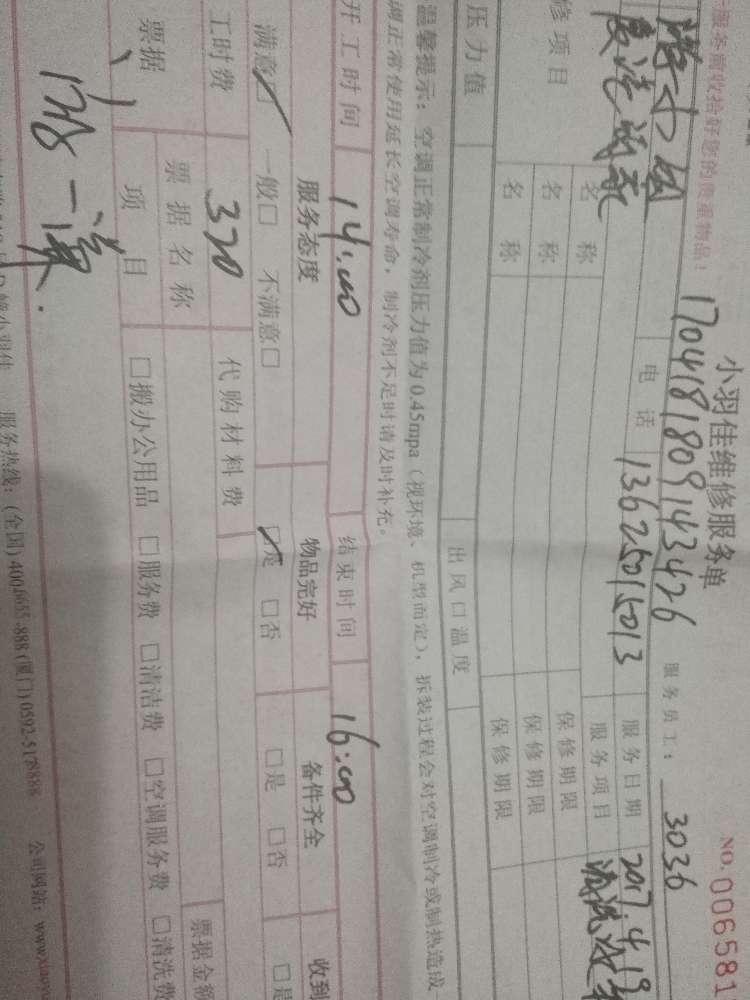 小羽佳维修服务单
NO.006581
服务前收拾好您的贵重物品！
1704181809143426
服务员工：3036
电话 13625015013
服务日期 2017.4.19
服务项目 清洗
修项目
名称
保修期限
名称
保修期限
名称
保修期限
压力值
出风口温度
温馨提示：空调正常制冷剂压力值为0.45mpa（视环境、机型而定），拆装过程会对空调制冷或制热造成
调正常使用延长空调寿命，制冷剂不足时请及时补充。
开工时间 14:00 结束时间 16:00
服务态度 物品完好 备件齐全 收到
满意☑ 一般□ 不满意□ ☑是 □否 □是 □否 □是
工时费 320 代购材料费
票据名称 票据金额
票据
项目 □搬办公用品 □服务费 □清洁费 □空调服务费 □清洗费
服务热线：(全国)4006655-888(厦门)0592-5178888 公司网站：www.xiaoy